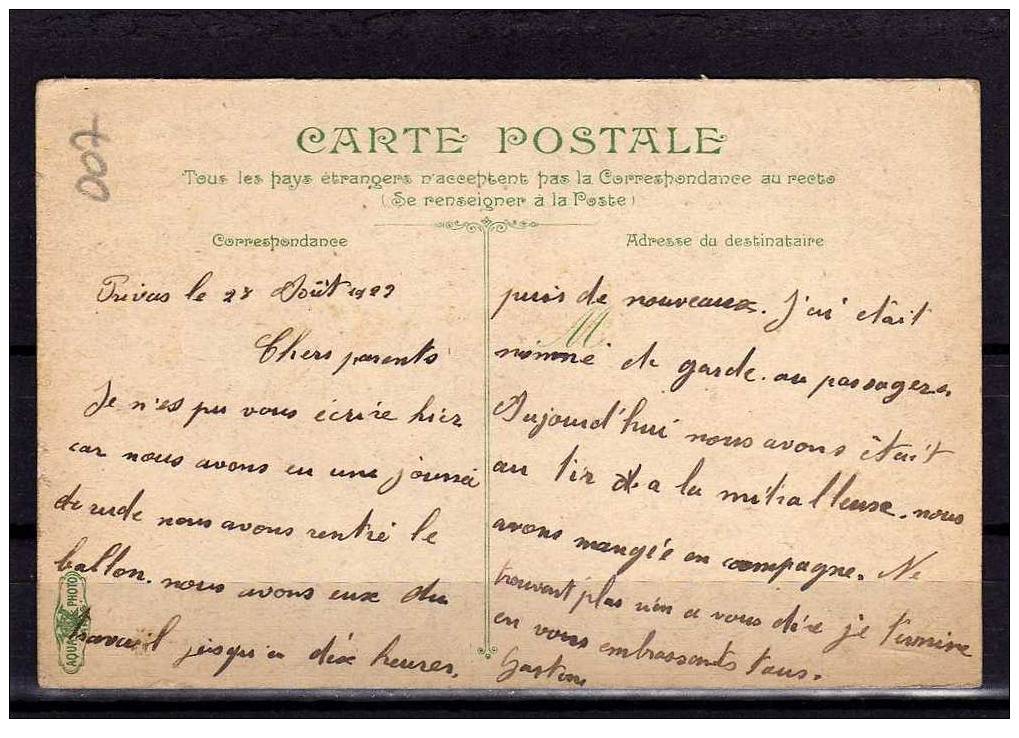 CARTE POSTALE
Tous les pays étrangers n'acceptent pas la Correspondance au recto
(Se renseigner à la Poste)
Correspondance
Adresse du destinataire
700
Privas le 28 Août 1922
Chers parents
Je n'es pu vous écrire hier
car nous avons eu une journé
de rude nous avons rentré le
ballon. nous avons eux du
travail jusqu'a dix heures.
puis de nouveaux. J'ai était
M
nommé de garde au passagers.
Aujourd'hui nous avons était
au tir a la mitralleuse. nous
avons mangée en compagne. Ne
trouvant plus rien a vous dire je termine
en vous embrassants tous.
Gaston
AQUA PHOTO